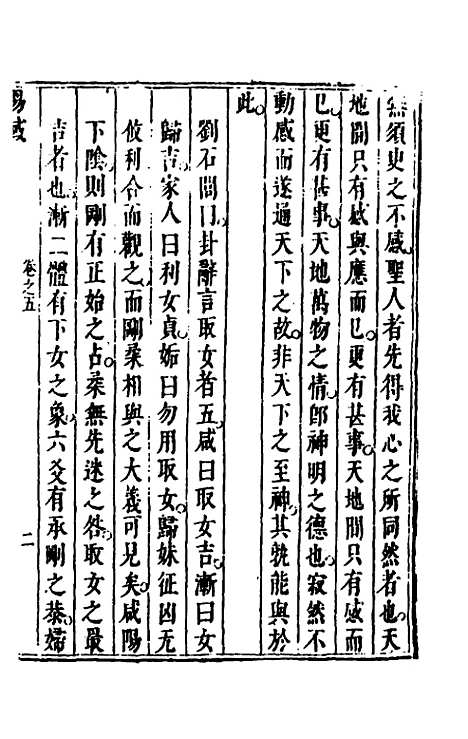 無須臾之不感聖人者先得我心之所同然者也天
地間只有感與應而已更有甚事天地間只有感而
已更有甚事天地萬物之情郎神明之德也寂然不
動感而遂通天下之故非天下之至神其孰能與於
此
劉石閭曰卦辭言取女者五咸曰取女吉漸曰女
歸吉家人曰利女貞姤曰勿用取女歸妹征凶无
攸利合而觀之而剛柔相與之大義可見矣咸陽
下陰則剛有正始之占柔無先迷之咎取女之最
吉者也漸二體有下女之象六爻有承剛之恭婦
易或
卷之五
二